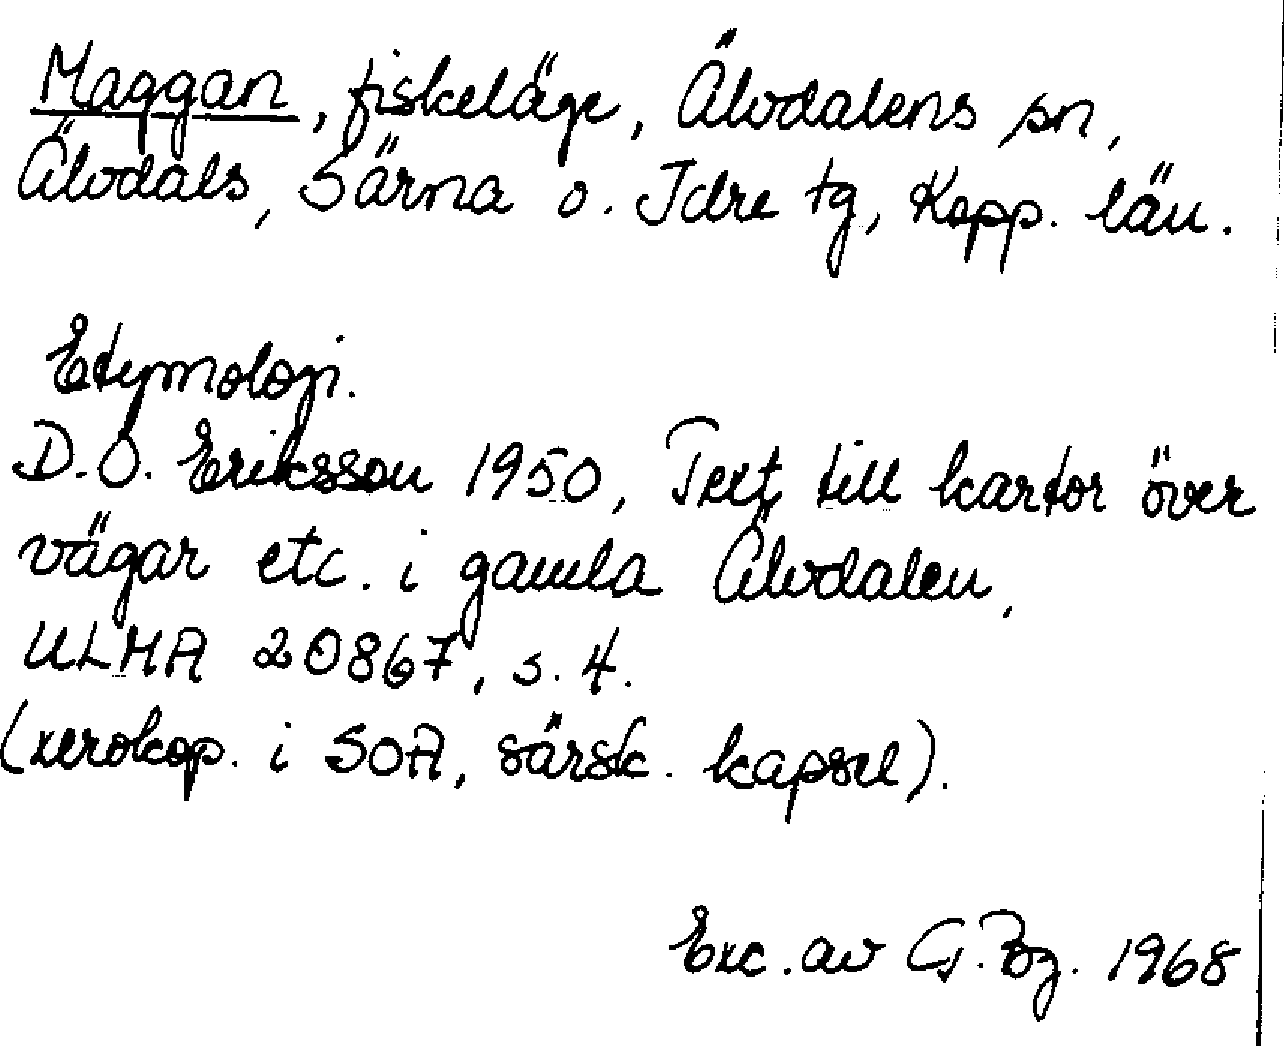 Maggan, fiskeläge, Älvdalens sn,
Älvdals, Särna o. Idre tg, Kopp. län.
Etymologi.
D.O. Eriksson 1950, Text till kartor över
vägar etc. i gamla Älvdalen,
ULMA 20867, s. 4.
(xerokop. i SOA, särsk. kapsel).
Exc. av G. Bg. 1968